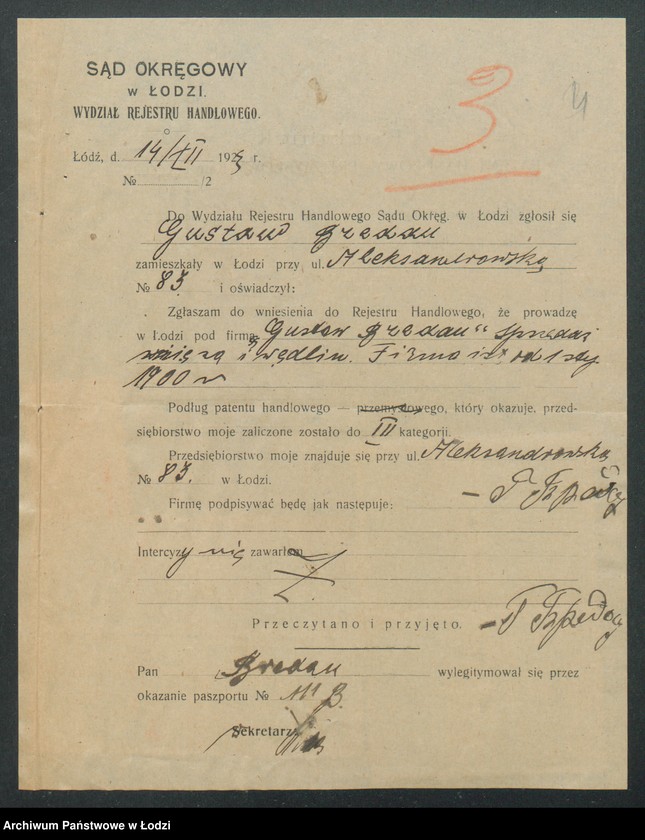 SĄD OKRĘGOWY
W ŁODZI.
WYDZIAŁ REJESTRU HANDLOWEGO.
3
4
Łódź, d. 14/XII 1923 r.
№ /2
Do Wydziału Rejestru Handlowego Sądu Okręg. w Łodzi zgłosił się
Gustaw Bredau
zamieszkały w Łodzi przy ul. Aleksandrowską
№ 83 i oświadczył:
Zgłaszam do wniesienia do Rejestru Handlowego, że prowadzę
w Łodzi pod firmą „Gustaw Bredau" sprzedaż
mięsa i wędlin. Firma ist. od
1900 r
Podług patentu handlowego — przemysłowego, który okazuje, przed-
siębiorstwo moje zaliczone zostało do III kategorii.
Przedsiębiorstwo moje znajduje się przy ul. Aleksandrowską
№ 83. w Łodzi.
Firmę podpisywać będę jak następuje:
Intercyzy nie zawarłem
Przeczytano i przyjęto.
Pan Bredau wylegitymował się przez
okazanie paszportu №
Sekretarz
Archiwum Państwowe w Łodzi